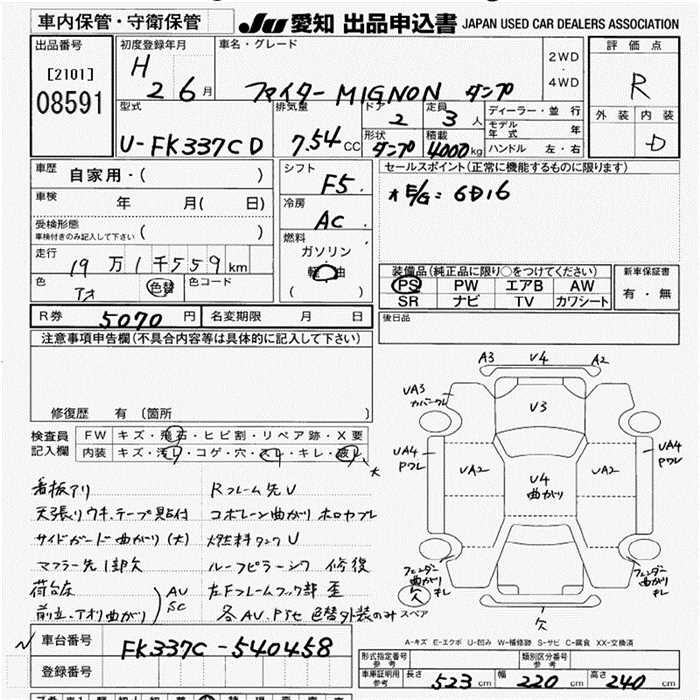 車内保管・守衛保管 JU 愛知 出品申込書 JAPAN USED CAR DEALERS ASSOCIATION
出品番号 初度登録年月 車名・グレード 評価点
[2101] H 2WD
08591 2 6月 ファイター MIGNON ダンプ ・ R
4WD
型式 排気量 ドア 定員 ディーラー・並行 外装 内装
2 3人 モデル年式 年
U-FK337CD 7.54cc 形状 積載 D
ダンプ 4000kg ハンドル 左・右
車歴 自家用・( ) シフト F5. セールスポイント(正常に機能するものに限ります)
車検 年 月( 日) 冷房 AC. E/G=6D16
受検形態 車検付きのみ記入して下さい ( ) 燃料
走行 ガソリン
19万1千559km 軽・油 装備品(純正品に限り○をつけてください) 新車保証書
色 色替 色コード ( ) PS PW エアB AW 有・無
SR ナビ TV カワシート
R券 5070円 名変期限 月 日 後日品
注意事項申告欄(不具合内容等は具体的に記入して下さい)
修復歴 有 [箇所 ]
検査員 FW キズ・飛石・ヒビ割・リペア跡・X要
記入欄 内装 キズ・汚レ・コゲ・穴・スレ・キレ・破レ
看板アリ Rフレーム先U
天張りウキ、テープ貼付 コボレーン曲がり ホロヤブレ
サイドガード曲がり(大) 燃料タンクU
マフラー先1部欠 ルーフピラーシワ 修復
荷台床 AU 左Fフレームフック部 歪
前立、アオリ曲がり SC 各AU、Pサビ 色替外装のみ
A3 V4 A2
UA3 カバーワレ V3
UA4 Pワレ UA2 U4 曲がり UA2 UA4 Pワレ
フェンダー曲がりキレ フェンダー曲がりキレ
欠 スペア 欠
A-キズ E-エクボ U-凹み W-補修跡 S-サビ C-腐食 XX-交換済
車台番号 FK337C-540458 形式指定番号 参考 類別区分番号 参考
登録番号 車庫証明用 参考 長さ 523cm 幅 220cm 高さ 240cm